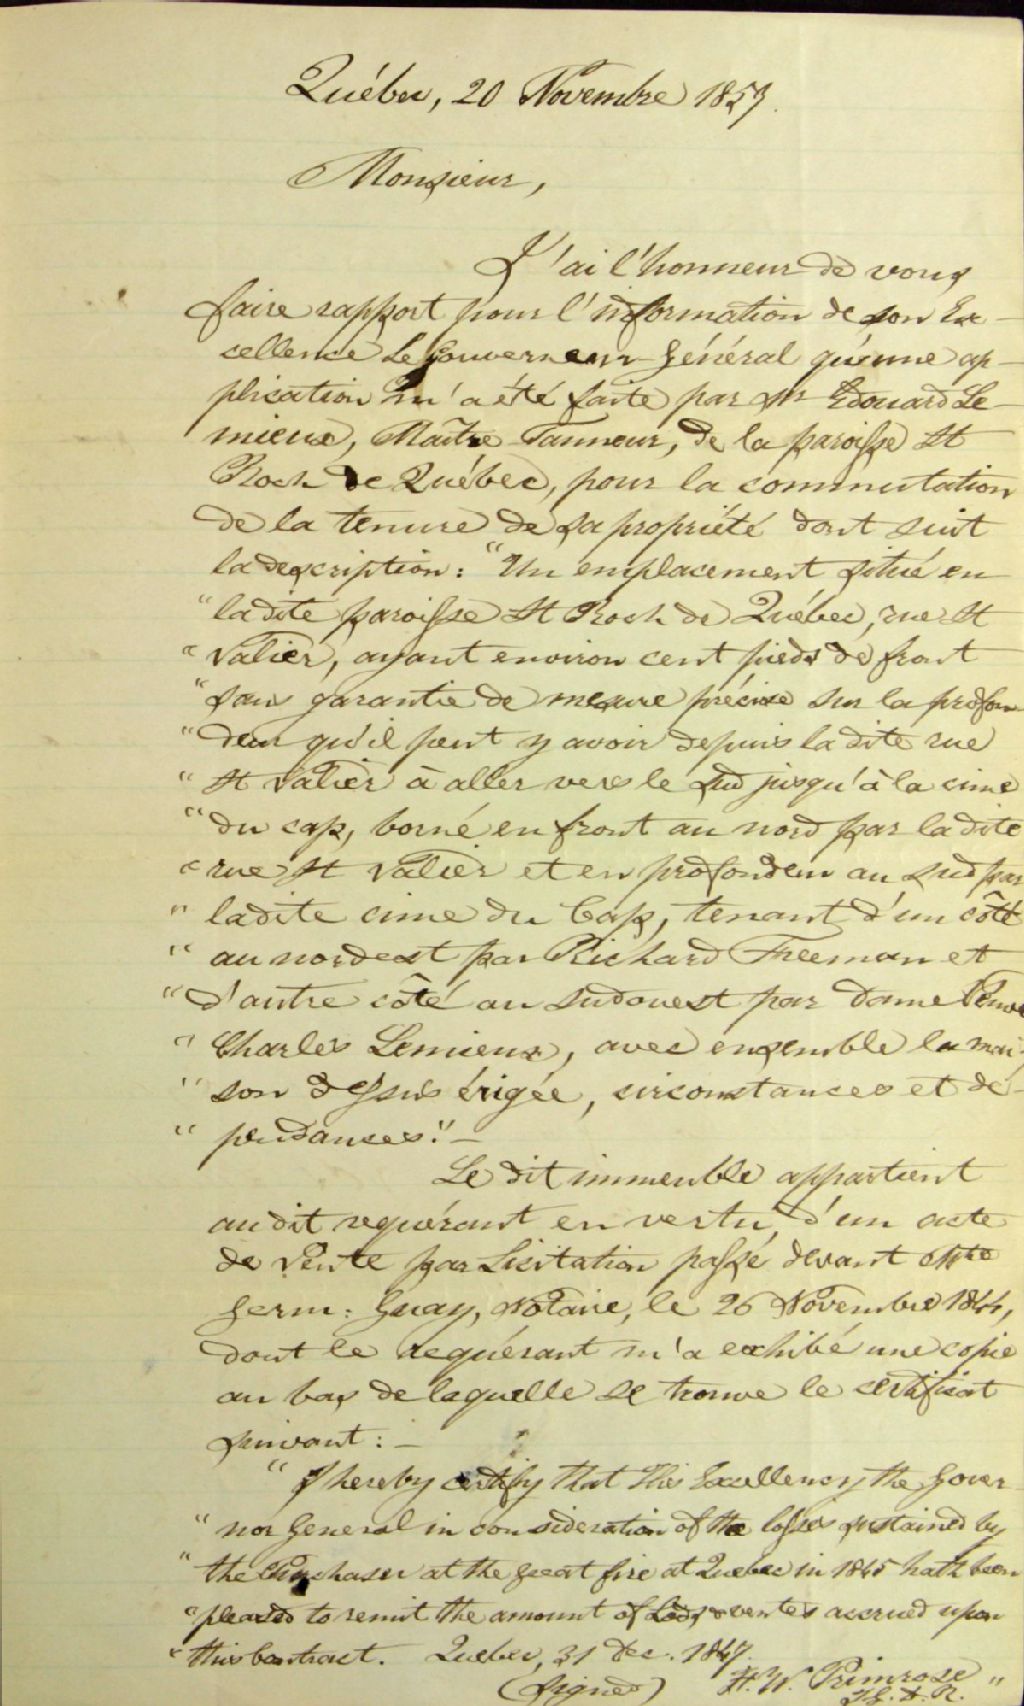 Québec, 20 Novembre 1857.
Monsieur,
J'ai l'honneur de vous
faire rapport pour l'information de son Ex-
cellence Le Gouverneur Général qu'une ap-
plication m'a été faite par Sr Edouard Le-
mieux, Maître Tanneur, de la paroisse St
Roch de Québec, pour la commutation
de la tenure de sa propriété dont suit
la description: "Un emplacement situé en
"la dite paroisse St Roch de Québec, rue St
"Valier, ayant environ cent pieds de front
"sans garantie de mesure précise sur la profon-
"deur qu'il peut y avoir depuis la dite rue
"St Valier à aller vers le sud jusqu'à la cime
"du cap, borné en front au nord par la dite
"rue St Valier et en profondeur au sud par
"la dite cime du Cap, tenant d'un côté
"au nordest par Richard Freeman et
"d'autre côté au sudouest par Dame Veuve
"Charles Lemieux, avec ensemble la mai-
"son dessus érigée, circonstances et dé-
"pendances."—
Le dit immeuble appartient
au dit requérant en vertu d'un acte
de Vente par Licitation passé devant Mtre
Germ: Guay, Notaire, le 26 Novembre 1844,
dont le requérant m'a exhibé une copie
au bas de laquelle se trouve le certificat
suivant:—
"I hereby certify that His Excellency the Gover-
"nor General in consideration of the losses sustained by
"the Purchaser at the great fire at Quebec in 1845 hath been
"pleased to remit the amount of Lods & ventes accrued upon
"this Contract. Quebec, 31 Dec. 1847.
(Signed) F. W. Primrose "